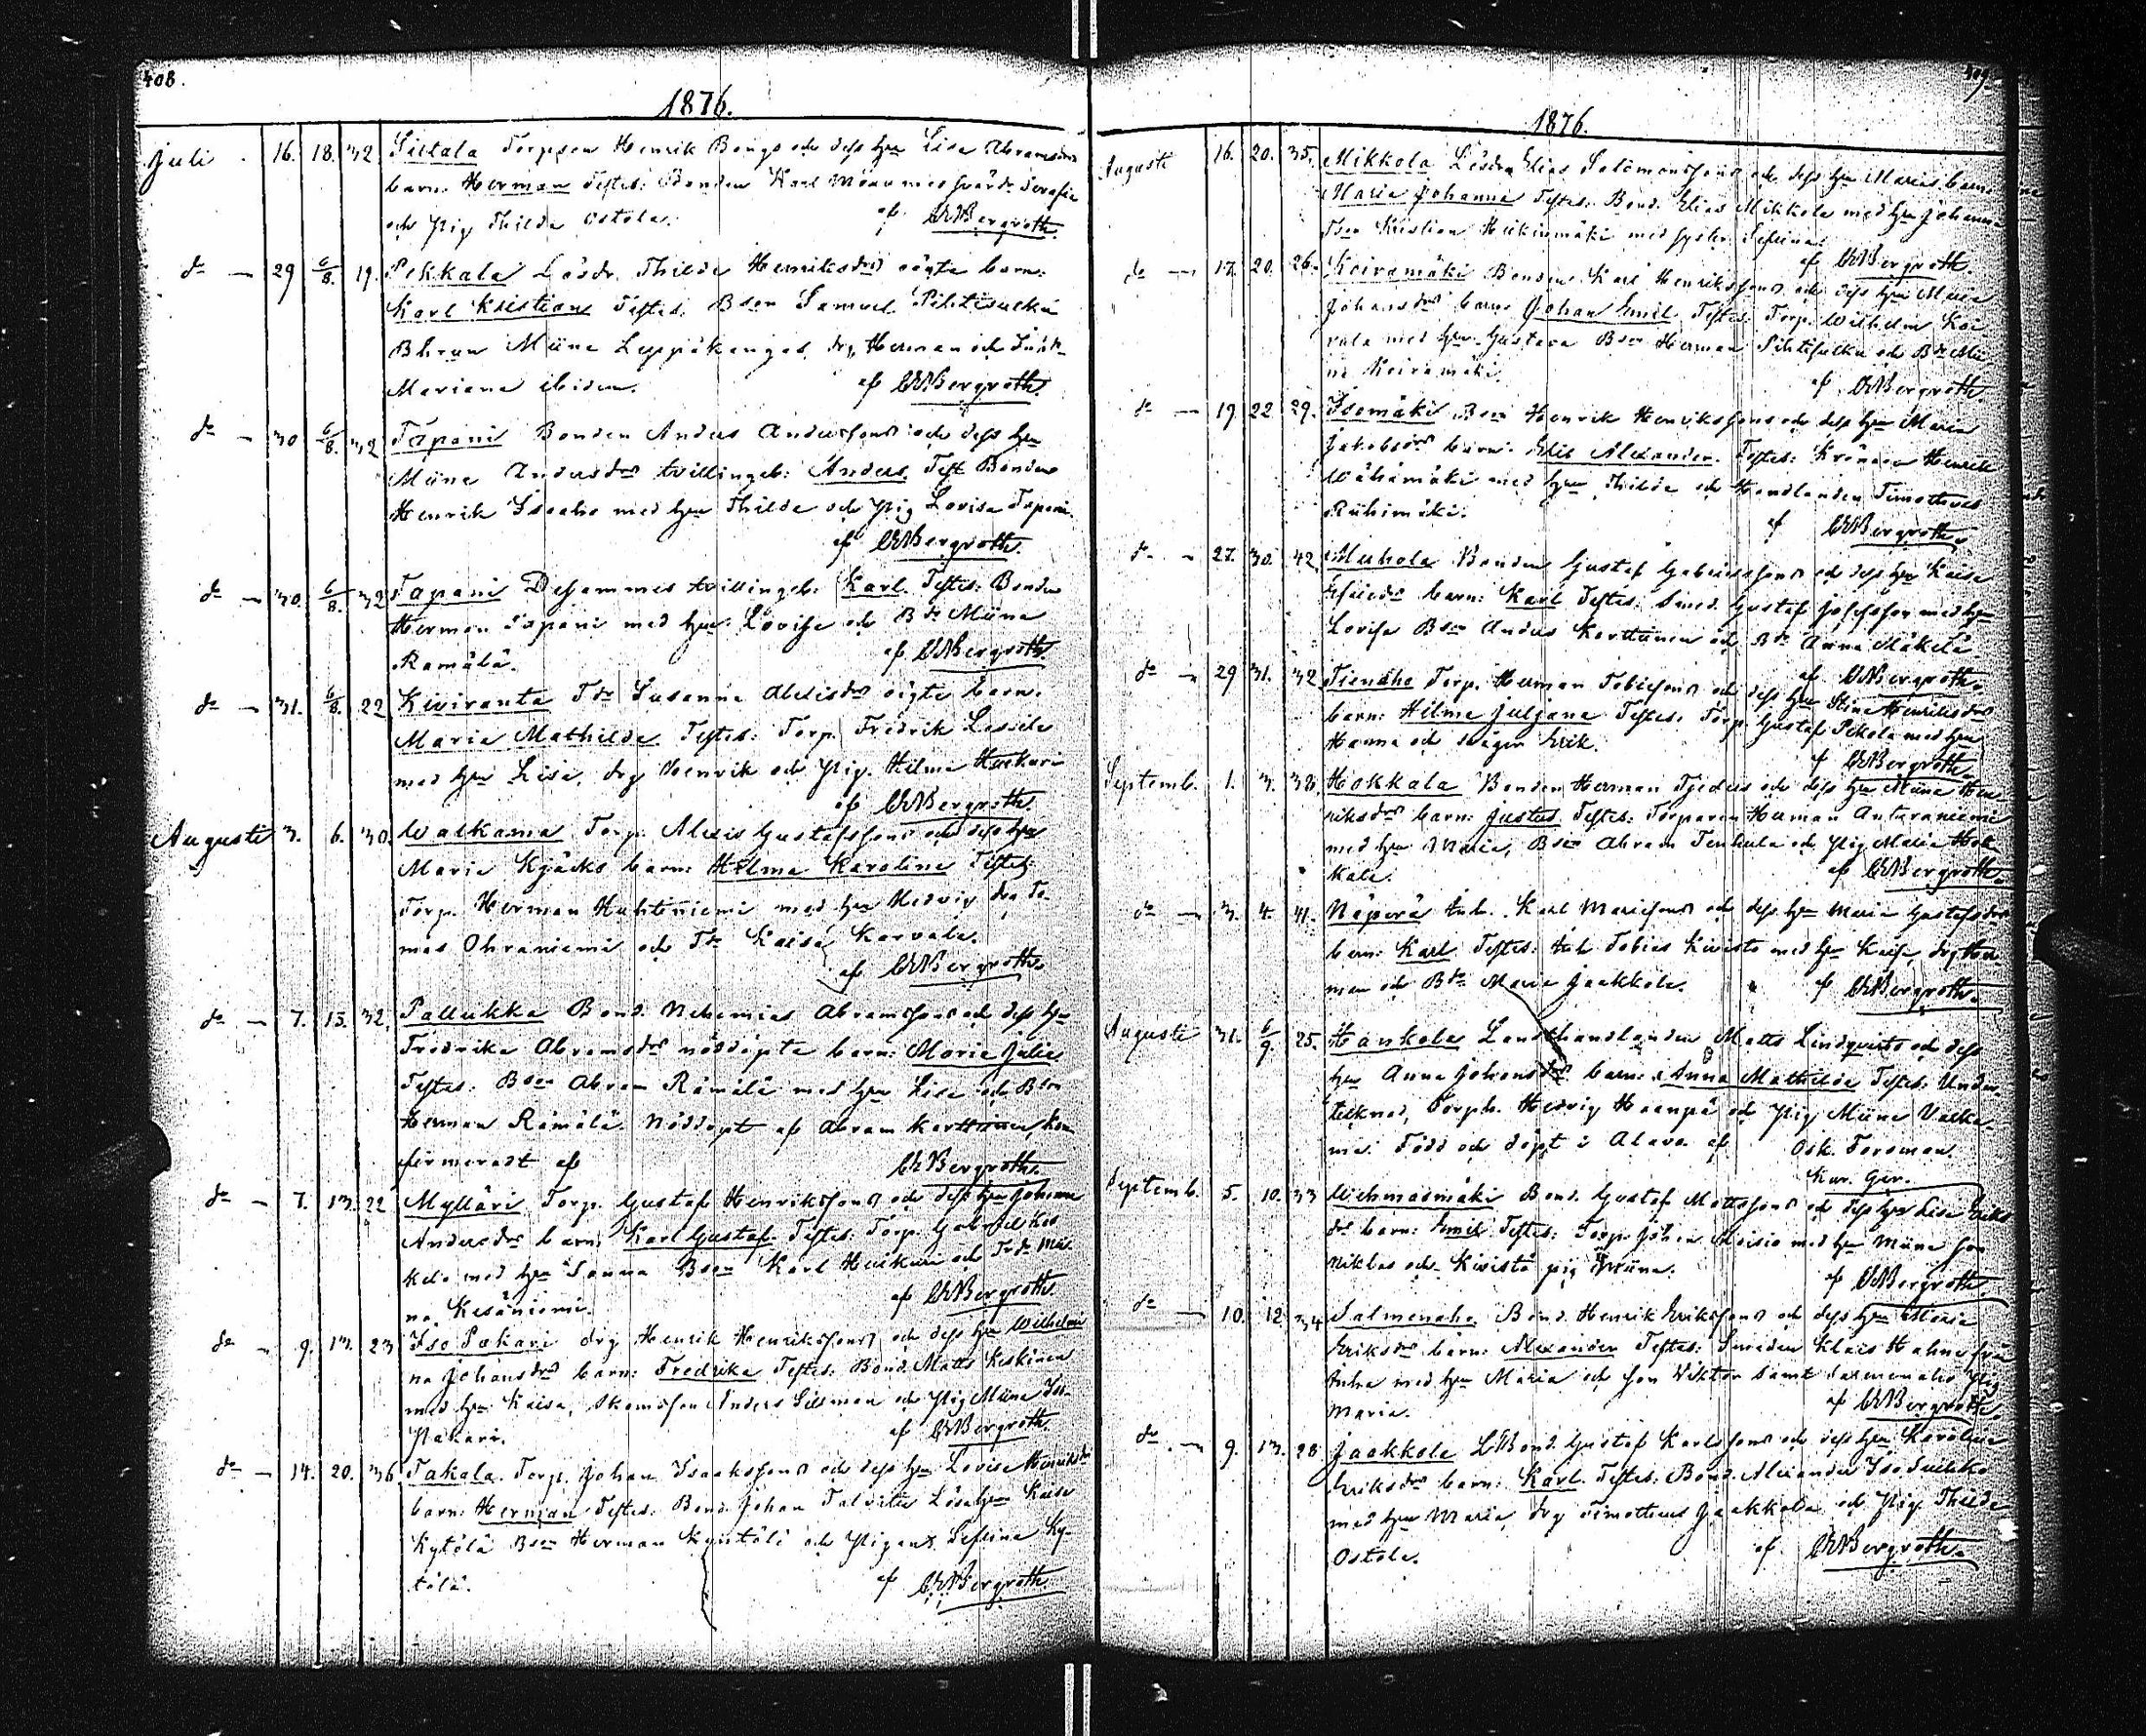 408.
1876.
Juli 16. 18. 32 Siltala Torpson Henrik Bengs och dess hu Lisa Abramsdr
barn: Herman Testes: Bonden Karl med Serafia
och Pig Thilda Ostola. af CWBergroth.
do 29 6/8. 19. Pekkala Lösdr. Thilda Henriksdrs oägta barn:
Karl Kristian Testes: Bson Samuel Pihtisulku
Miina Leppäkangas, drg Herman och
Mariana ibidem. af CWBergroth.
do 30 6/8. 32 Tapani Bonden Anders Anderssons och dess hu
Miina Andersdrs tvillingeb: Anders. Test Bonden
Henrik Isoaho med hu Thilda och Pig Lovisa Tapani.
af CWBergroth.
do 30. 6/8. 32 Tapani Desammes tvillingeb: Karl. Testes: Bonden
Herman Tapani med hu Lovisa och Bdr Miina
Rämälä. af CWBergroth
do 31. 6/8. 22 Kiviranta Tdr Susanna Alexisdrs oägta barn:
Maria Mathilda Testes: Torp. Fredrik Lassila
med hu Lisa, drg Henrik och Pig. Hilma Harkuri
af CWBergroth.
Augusti 3. 6. 30. Walkama Torp. Alexis Gustafssons och dess hu
Maria Kjäcks barn: Hilma Karolina Testes
Torp. Herman Huhtaniemi med hu Hedvig drg To-
mas Ohraniemi och Tdr Kaisa Karvala.
af CWBergroth.
do 7. 13. 32. Pallukka Bond. Nehemias Abramssons och dess hu
Fredrika Abramsdrs nöddöpta barn: Maria Julia
Testes: Bson Abram Rämälä med hu Lisa och Bson
Herman Rämälä. Nöddöpt af Abram Karttunen, kon-
firmeradt af CWBergroth.
do 7. 13. 22 Mylläri Torp. Gustaf Henrikssons och dess hu Johana
Andersdrs barn: Karl Gustaf. Testes: Torp. Gabriel Kos
kela med hu Sanna Bson Karl Harkuri och
na Kesäniemi. af CWBergroth.
do 9. 13. 23 Iso Pahari drg Henrik Henrikssons och dess hu Wilhelmi
na Johansdrs barn: Fredrika Testes: Bond. Matts Keskinen
med hu Kaisa, Skomson Anders Sillman och Pig Miina Iso-
Pahari. af CWBergroth.
do 14. 20. 36. Takala. Torp. Johan Isaakssons och dess hu Lovisa Henriksdr
barn: Herman Testes: Bond. Johan Talvitie Kaisa
Kytölä Bson Herman Kyntölä och Pigan Sefina Ky-
tölä. af CWBergroth
409.
1876.
Augusti 16. 20. 35. Mikkola Lösdr Elias Salomonssons och dess hu Marias barn:
Maria Johanna Testes: Bond. Elias Mikkola med hu Johana
Tson Kristian Heikinmäki med syster Sefina.
af CWBergroth.
do 17. 20. 26. Koiramäki Bonden Karl Henrikssons och dess hu Maria
Johansdrs barn: Johan Emil Testes: Torp. Wilhelm Koi
vula med hu Gustava Bson Herman Pihtisulku och Bdr Mii
na Koiramäki. af CWBergroth
do 19. 22 29. Isomäki Bson Henrik Henrikssons och dess hu Maria
Jakobsdrs barn: Elis Alexander. Testes: Henrik
Wähämäki med hu Thilda och Handlanden Timotheus
Riihimäki. af CWBergroth.
do 27. 30. 42. Muhola Bonden Gustaf Gabrielssons och dess hu Kaisa
barn: Karl Testes: Smed. Gustaf Josefsson med hu
Lovisa Bson Anders Karttunen och Bdr Anna Mäkelä.
af CWBergroth.
do 29 31. 32 Tienaho Torp. Herman Tobiassons och dess hu Stina Henriksdrs
barn: Hilma Juljana Testes: Torp. Gustaf Pekola med hu
Hanna och svåger Erik. af CWBergroth.
Septemb. 1. 3. 38 Hokkala Bonden Herman och dess hu Miina Hen-
riksdrs barn: Justus Testes: Torparen Herman Anteroniemi
med hu Maria, Bson Abram och Pig Maria Hok
kala. af CWBergroth.
do 3. 4. 41. Näperä Inh. Karl Mariassons och dess hu Maria Gustafsdrs
barn: Karl Testes: Inh Tobias Kivistö med hu Kaisa, drg Her-
man och Bdr Maria Jaakkola. af CWBergroth.
Augusti 31. 6/9. 25. Hankola Landthandlanden Matts Lindqvists och dess
hu Anna Johansdrs barn: Anna Mathilda Testes: Under-
tecknad, Torph. Hedvig Haanpä och Pig Miina Valka-
ma. Född och döpt i Alavo af Osk. Forsman
Kar. Ger.
Septemb. 5. 10. 33 Wehmasmäki Bond. Gustaf Mattssons och dess hu Lisa Eriks
dr barn: Emil Testes: Torp. Johan Aloisio med hu Miina son
Niklas och Kivistö pig Miina. af CWBergroth.
do 10. 12 34 Salmenaho Bond. Henrik Erikssons och dess hu Maria
Eriksdrs barn: Alexander Testes: Smeden Klais Hahne från
med hu Maria och son Viktor samt Salmenaho Pig
Maria. af CWBergroth.
do 9. 13. 28 Jaakkola LBond. Gustaf Karlssons och dess hu Karolina
Eriksdrs barn: Karl. Testes: Bond. Alexander Iso
med hu Maria, drg Timotheus Jaakkola och Pig. Thilda
Ostola. af CWBergroth.